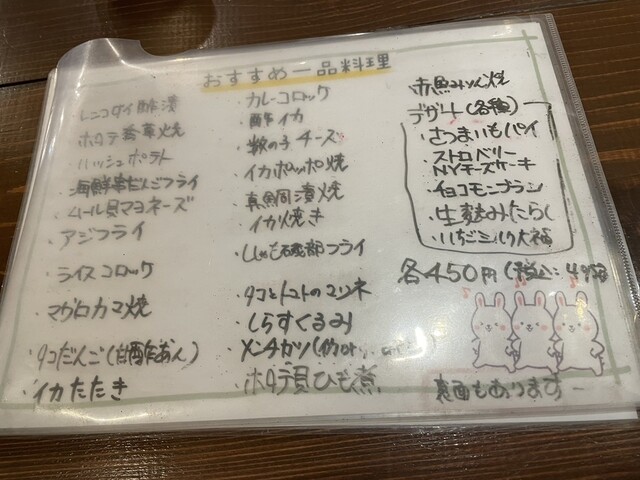 おすすめ一品料理
レンコダイ酢漬
ホタテ香草焼
ハッシュポテト
海鮮串だんごフライ
ムール貝マヨネーズ
アジフライ
ライスコロッケ
マグロカマ焼
タコだんご(甘酢あん)
イカたたき
カレーコロッケ
酢イカ
数の子チーズ
イカポッポ焼
真鯛漬焼
イカ焼き
ししゃも磯部フライ
タコとトマトのマリネ
しらすくるみ
メンチカツ(
ホタテ貝ひも煮
赤魚みりん焼
デザート(各種)
・さつまいもパイ
・ストロベリー
NYチーズケーキ
・チョコモンブラン
・生麩みたらし
・いちごミルク大福
各450円(税込:495
裏面もあります